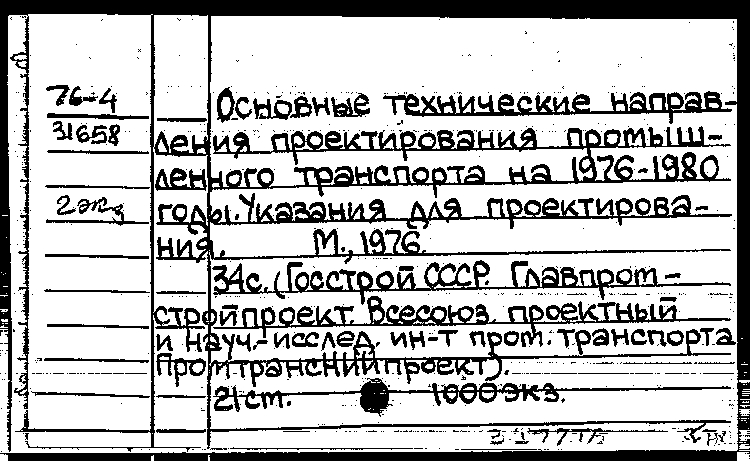 76-4 Основные технические направ-
31658 ления проектирования промыш-
ленного транспорта на 1976-1980
2 экз годы. Указания для проектирова-
ния. М., 1976.
34с. (Госстрой СССР. Главпром-
стройпроект. Всесоюз. проектный
и науч.-исслед. ин-т пром. транспорта
ПромтрансНИИпроект).
21 ст. 1000 экз.